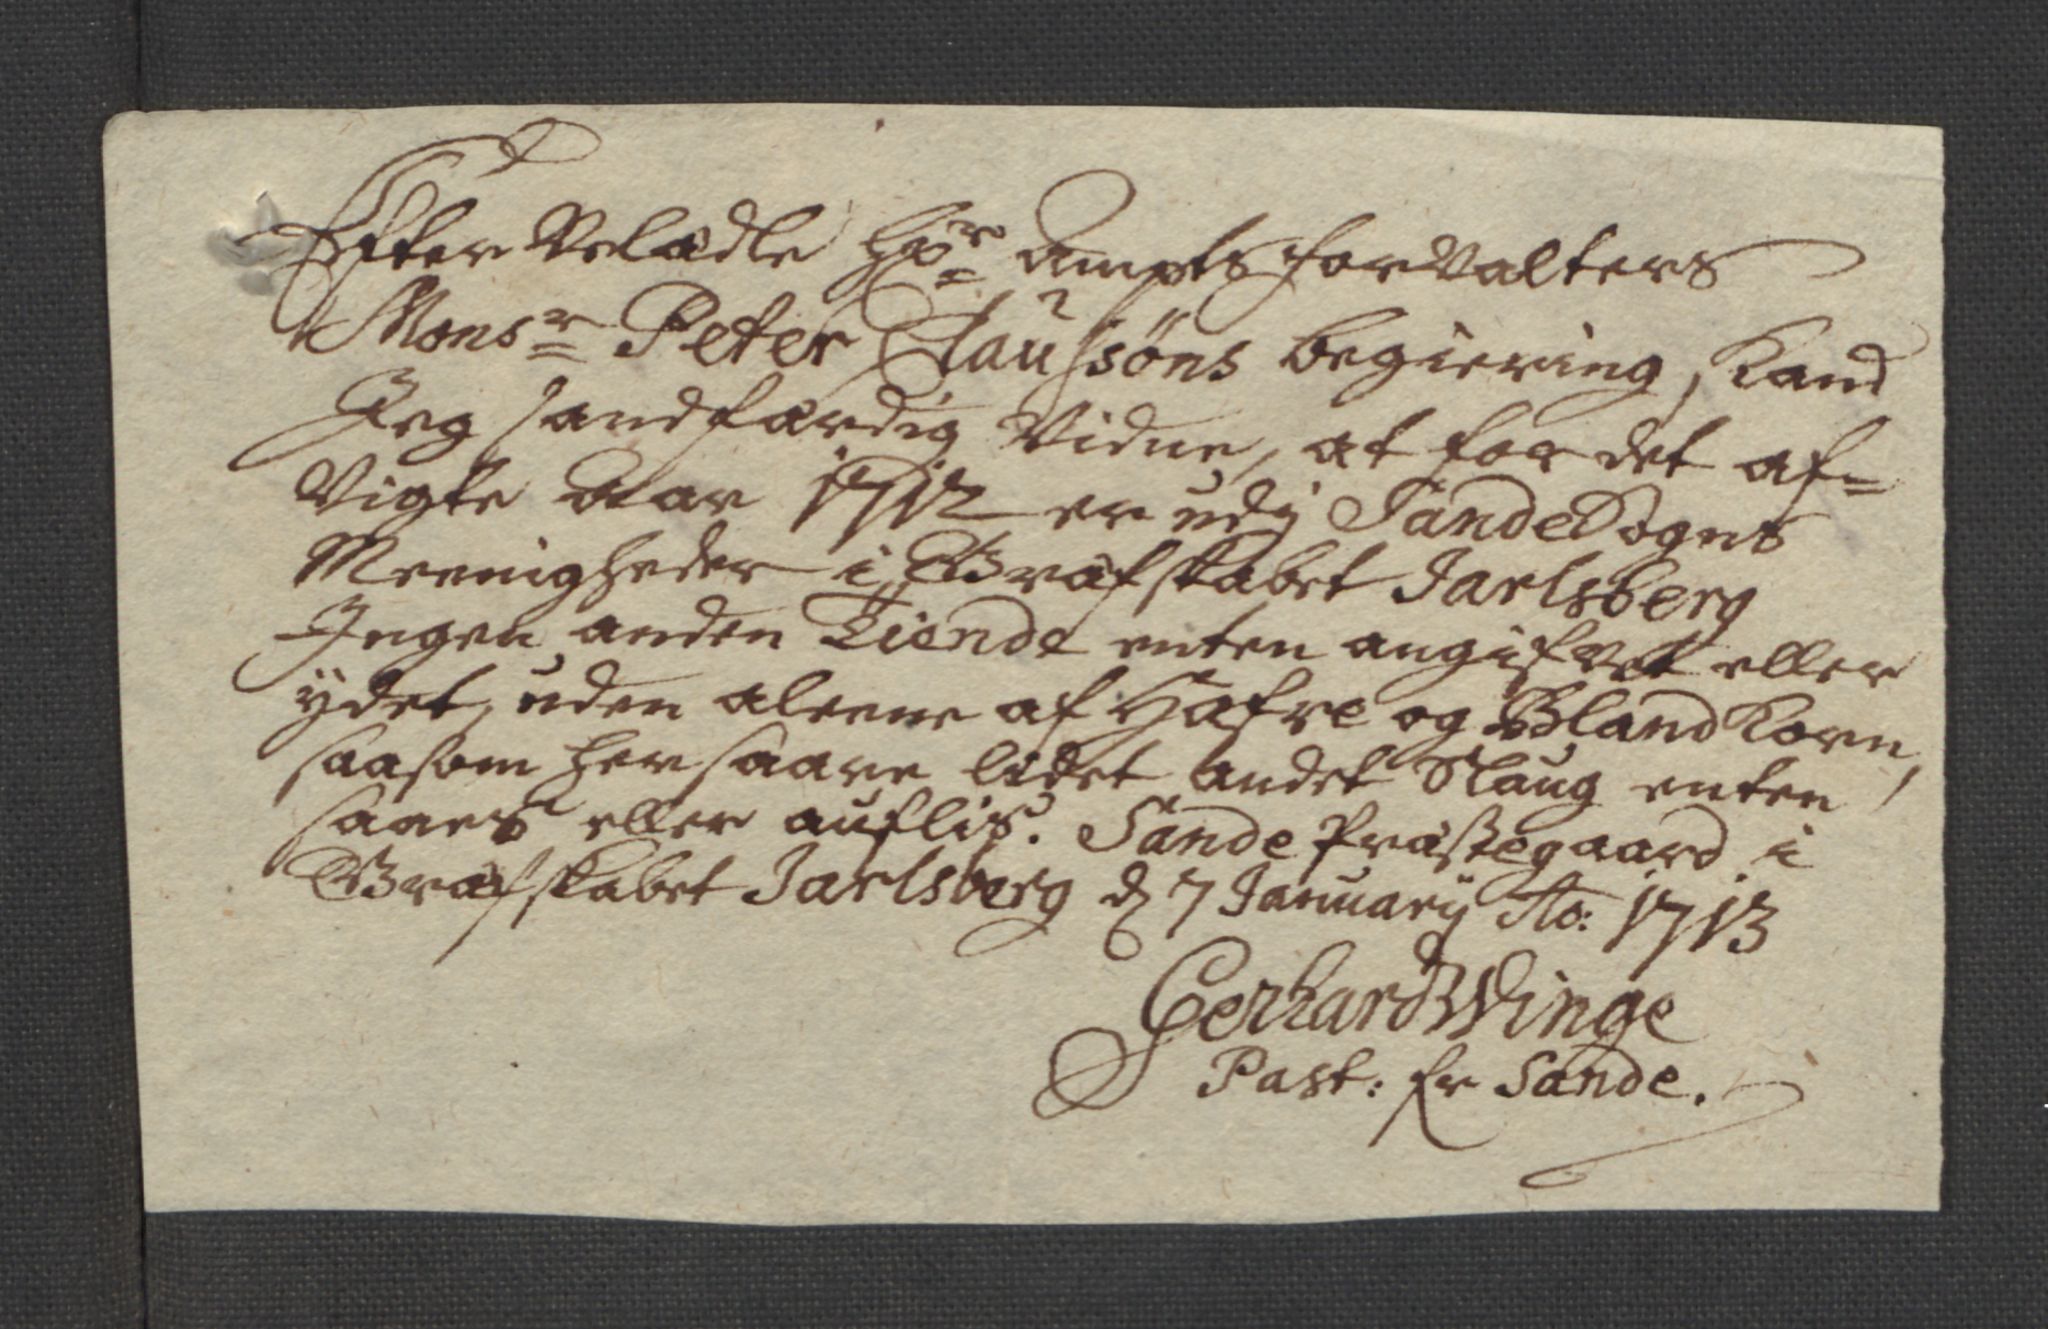 Efter Velædle Hr Ampts forvalters
Monsr Peter Claussøns begiering, kand
Jeg sandfærdig vidne, at for det af=
vigte aar 1712 er udj Sande Sogns
Meenigheder i Grafskabet Jarlsberg
Ingen anden Tiende enten angifvet eller
ydet, uden aleene af Hafre og Blandkorn,
saasom her saare lidet andet Slaug enten
saaes eller auflis. Sande Præstegaard i
Grafskabet Jarlsberg d 7 Januarij Ao: 1713
Gerhard Winge
Past: fr Sande.